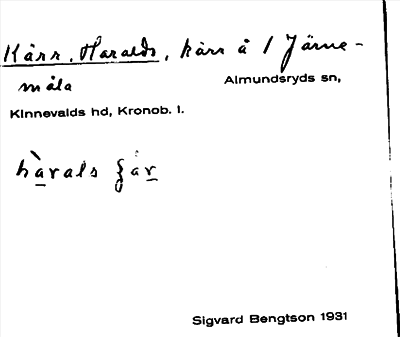 Kärr, Haralds, kärr å 1 Järne-
måla
Almundsryds sn,
Kinnevalds hd, Kronob. l.
hàrals ʒár
Sigvard Bengtson 1931